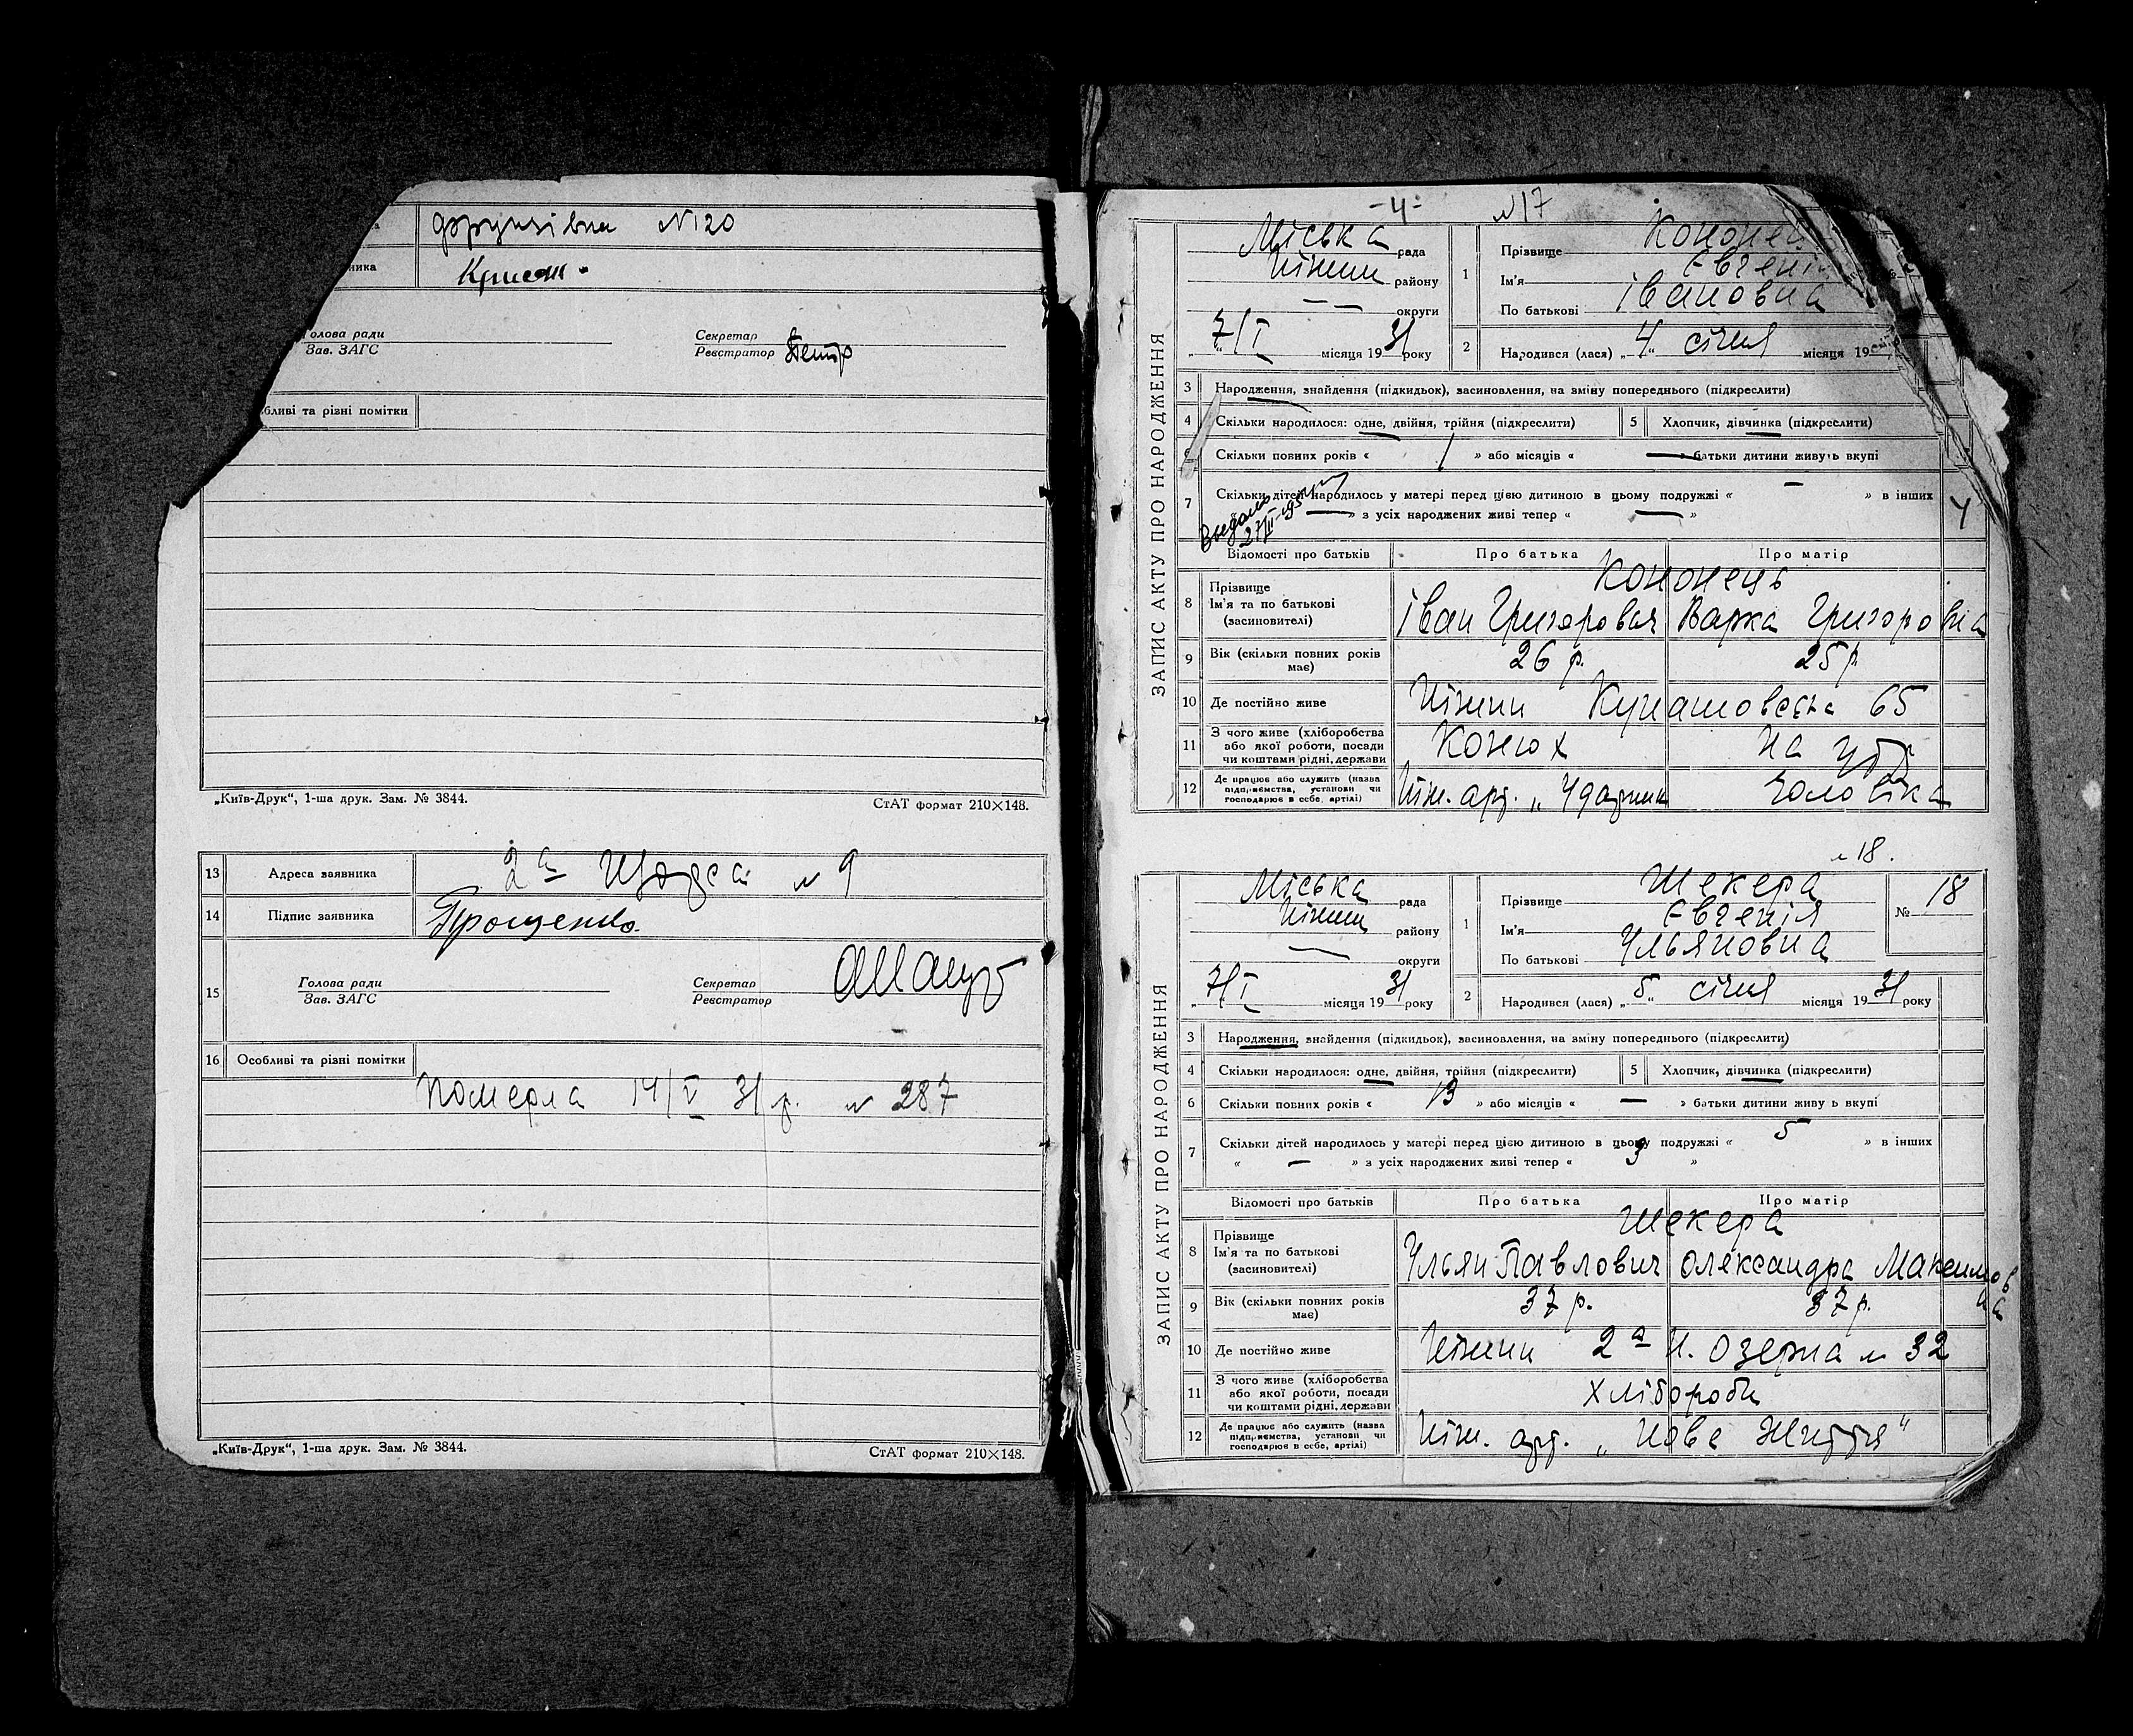 № 120
ника
Голова ради
Зав. ЗАГС
Секретар
Реєстратор
бливі та різні помітки
„Київ-Друк“, 1-ша друк. Зам. № 3844.
СтАТ формат 210×148.
13 Адреса заявника 2а № 9
14 Підпис заявника Прощенко
15 Голова ради
Зав. ЗАГС
Секретар
Реєстратор
16 Особливі та різні помітки
Померла 14/V 31 р. № 287
„Київ-Друк“, 1-ша друк. Зам. № 3844.
СтАТ формат 210×148.
-4-
№ 17
ЗАПИС АКТУ ПРО НАРОДЖЕННЯ
Міська рада
Ніжин району
— — округи
„ 7/I місяця 1931 року
1 Прізвище Кононець
Ім'я Євгенія
По батькові Івановна
2 Народився (лася) „4“ січня місяця 19
3 Народження, знайдення (підкидьок), засиновлення, на зміну попереднього (підкреслити)
4 Скільки народилося: одне, двійня, трійня (підкреслити)
5 Хлопчик, дівчинка (підкреслити)
6 Скільки повних років « 1 » або місяців « — » батьки дитини живуть вкупі
7 Скільки дітей народилось у матері перед цією дитиною в цьому подружжі « — » в інших
« — » з усіх народжених живі тепер « — »
Відомості про батьків Про батька Про матір
8 Прізвище
Ім'я та по батькові
(засиновителі)
Кононець
Іван Григорович Варка Григоровна
9 Вік (скільки повних років має) 26 р. 25 р.
10 Де постійно живе Ніжин Кунашовська 65
11 З чого живе (хліборобства
або якої роботи, посади
чи коштами рідні, держави
Конюх На утр
12 Де працює або служить (назва
підприємства, установи чи
господарює в себе, артілі)
Ніж. арт. „Ударник Чоловіка
№ 18.
ЗАПИС АКТУ ПРО НАРОДЖЕННЯ
Міська рада
Ніжин району
— округи
„ 7/I місяця 1931 року
1 Прізвище Шекера
Ім'я Євгенія
По батькові Ульяновна
№ 18
2 Народився (лася) „5“ січня місяця 1931 року
3 Народження, знайдення (підкидьок), засиновлення, на зміну попереднього (підкреслити)
4 Скільки народилося: одне, двійня, трійня (підкреслити)
5 Хлопчик, дівчинка (підкреслити)
6 Скільки повних років « 13 » або місяців « — » батьки дитини живу ь вкупі
7 Скільки дітей народилось у матері перед цією дитиною в цьому подружжі « 5 » в інших
« — » з усіх народжених живі тепер « 3 »
Відомості про батьків Про батька Про матір
8 Прізвище
Ім'я та по батькові
(засиновителі)
Шекера
Ульян Павлович Олександра Максимовна
9 Вік (скільки повних років має) 37 р. 37 р.
10 Де постійно живе Ніжин 2а Н. Озерна № 32
11 З чого живе (хліборобства
або якої роботи, посади
чи коштами рідні, держави
Хлібороби
12 Де працює або служить (назва
підприємства, установи чи
господарює в себе, артілі)
Ніж. арт. „Нове Життя“